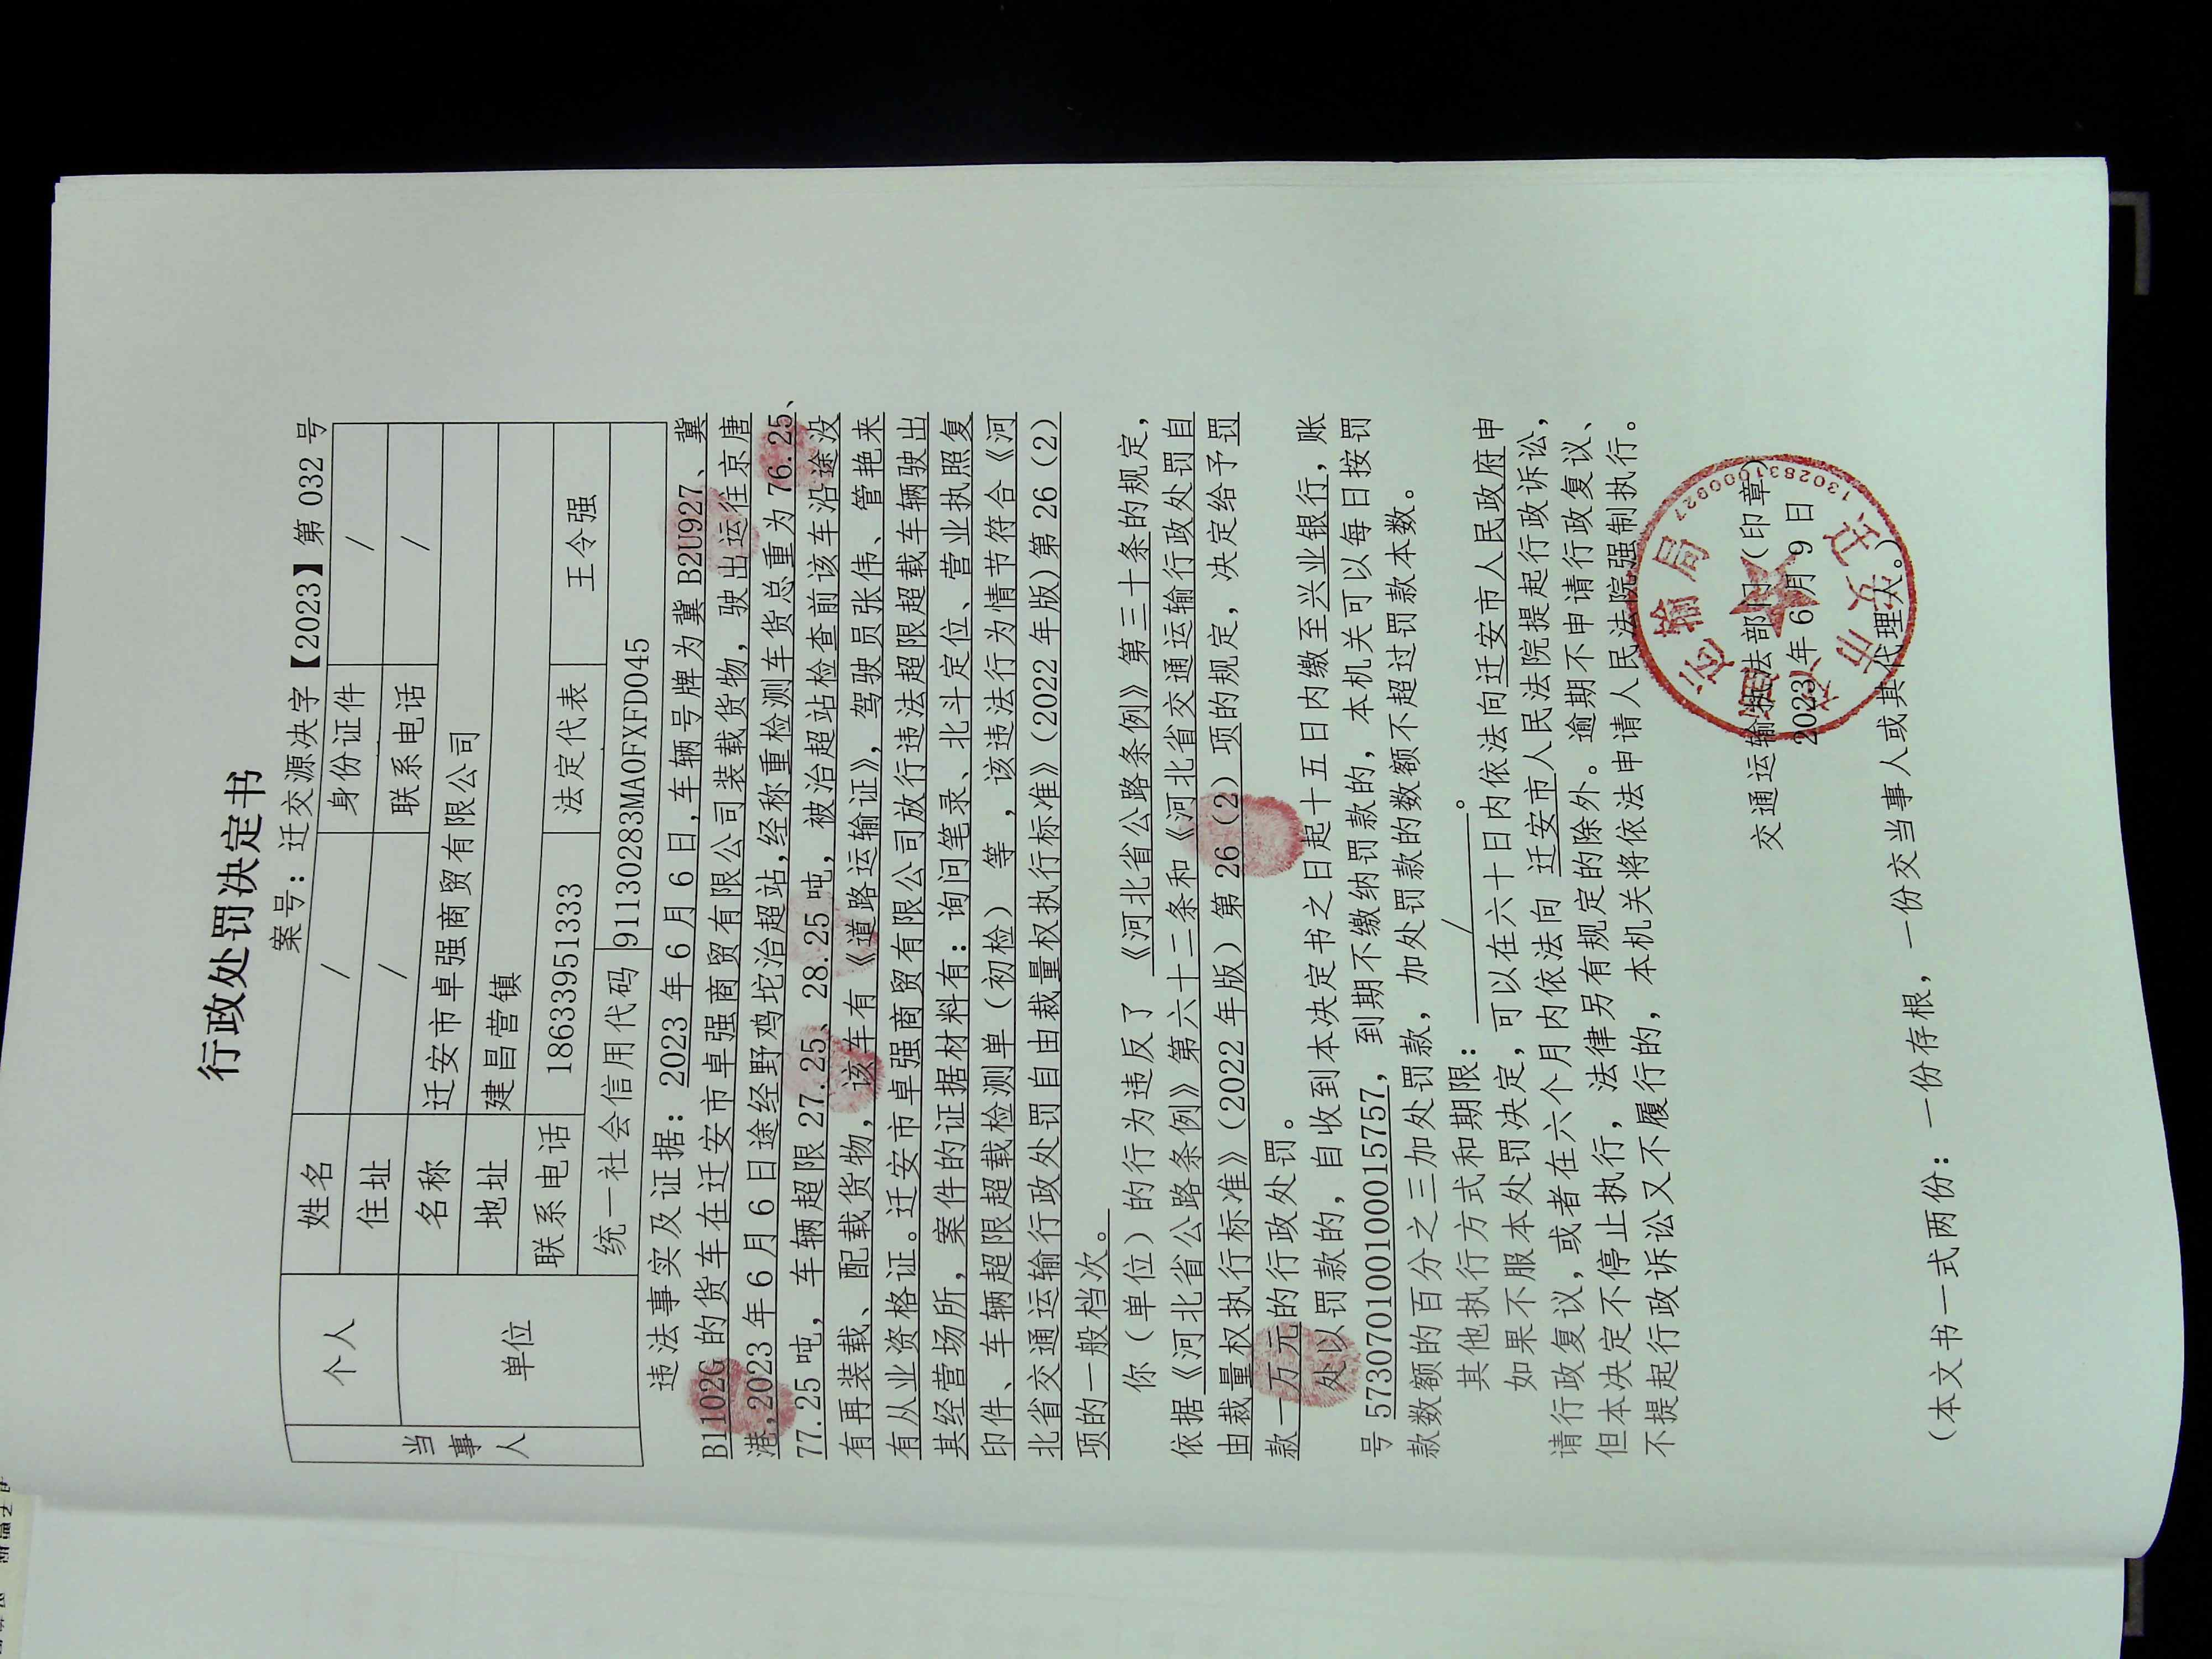 行政处罚决定书
案号：迁交源决字【2023】第 032 号
当事人 个人 姓名 / 身份证件 /
住址 / 联系电话 /
单位 名称 迁安市卓强商贸有限公司
地址 建昌营镇
联系电话 18633951333 法定代表 王令强
统一社会信用代码 91130283MA0FXFD045
违法事实及证据：2023 年 6 月 6 日,车辆号牌为冀 B2U927、冀
B1102G 的货车在迁安市卓强商贸有限公司装载货物，驶出运往京唐
港,2023 年 6 月 6 日途经野鸡坨治超站,经称重检测车货总重为 76.25、
77.25 吨，车辆超限 27.25、28.25 吨，被治超站检查前该车沿途没
有再装载、配载货物,该车有《道路运输证》，驾驶员张伟、管艳来
有从业资格证。迁安市卓强商贸有限公司放行违法超限超载车辆驶出
其经营场所，案件的证据材料有：询问笔录、北斗定位、营业执照复
印件、车辆超限超载检测单（初检）等，该违法行为情节符合《河
北省交通运输行政处罚自由裁量权执行标准》（2022 年版）第 26（2）
项的一般档次。
你（单位）的行为违反了《河北省公路条例》第三十条的规定，
依据《河北省公路条例》第六十三条和《河北省交通运输行政处罚自
由裁量权执行标准》（2022 年版）第 26（2）项的规定，决定给予罚
款一万元的行政处罚。
处以罚款的，自收到本决定书之日起十五日内缴至兴业银行，账
号 573070100100015757，到期不缴纳罚款的，本机关可以每日按罚
款数额的百分之三加处罚款，加处罚款的数额不超过罚款本数。
其他执行方式和期限： / 。
如果不服本处罚决定，可以在六十日内依法向迁安市人民政府申
请行政复议，或者在六个月内依法向 迁安市人民法院提起行政诉讼，
但本决定不停止执行，法律另有规定的除外。逾期不申请行政复议、
不提起行政诉讼又不履行的，本机关将依法申请人民法院强制执行。
交通运输执法部门（印章）
2023 年 6 月 9 日
迁安市交通运输局
（本文书一式两份：一份存根，一份交当事人或其代理人。）